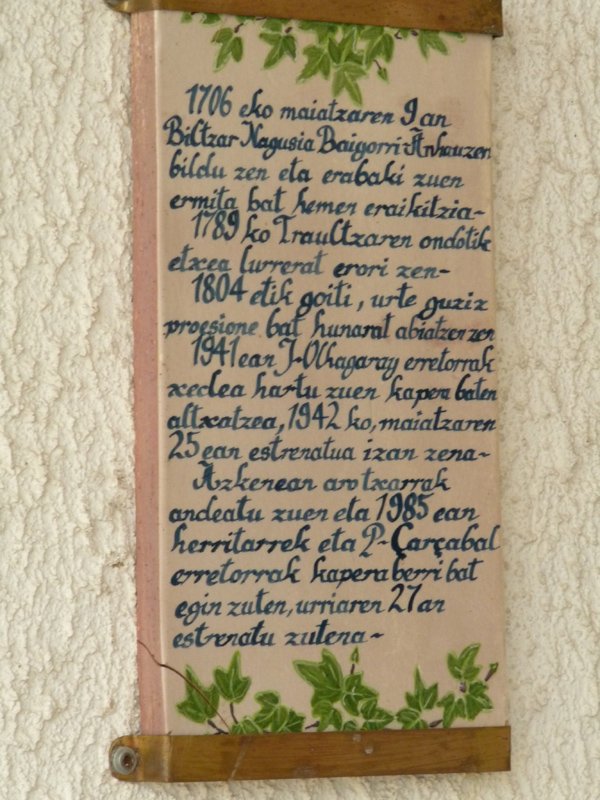 1706 eko maiatzaren 9 an
Biltzar Nagusia Baigorri-Anhauzen
bildu zen eta erabaki zuen
ermita bat hemen eraikitzia-
1789 ko Traultzaren ondotik
etxea lurrerat erori zen-
1804 etik goiti, urte guziz
proesione bat hunarat abiatzen zen
1941 ean J-Olhagaray erretorrak
xedea hartu zuen kapera baten
altxatzea, 1942 ko, maiatzaren
25 ean estrenatua izan zena-
Azkenean arotxarrak
andeatu zuen eta 1985 ean
herritarrek eta P- Çarçabal
erretorrak kapera berri bat
egin zuten, urriaren 27 an
estrenatu zutena-